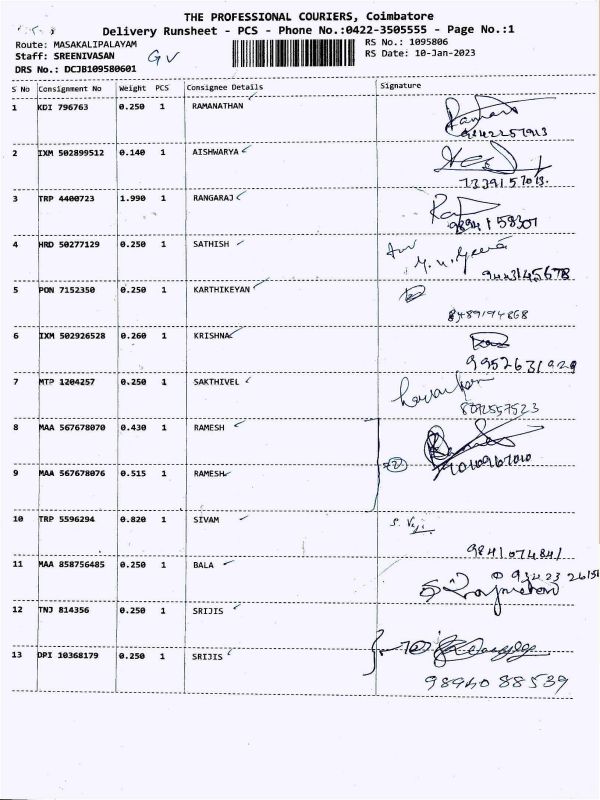 THE PROFESSIONAL COURIERS, Coimbatore
Delivery Runsheet - PCS - Phone No.:0422-3505555 - Page No.:1
Route: MASAKALIPALAYAM
RS No.: 1095806
Staff: SREENIVASAN
GV
RS Date: 10-Jan-2023
DRS No.: DCJB109580601
S No Consignment No Weight PCS Consignee Details Signature
1 KDI 796763 0.250 1 RAMANATHAN
9842257913
2 IXM 502899512 0.140 1 AISHWARYA
3 TRP 4400723 1.990 1 RANGARAJ
9894158307
4 HRD 50277129 0.250 1 SATHISH
9443145678
5 PON 7152350 0.250 1 KARTHIKEYAN
8489194868
6 IXM 502926528 0.260 1 KRISHNA
9952631929
7 MTP 1204257 0.250 1 SAKTHIVEL
8 MAA 567678070 0.430 1 RAMESH
9 MAA 567678076 0.515 1 RAMESH
10 TRP 5596294 0.820 1 SIVAM
S. Viji
9841074841
11 MAA 858756485 0.250 1 BALA
12 TNJ 814356 0.250 1 SRIJIS
13 DPI 10368179 0.250 1 SRIJIS
9894088539